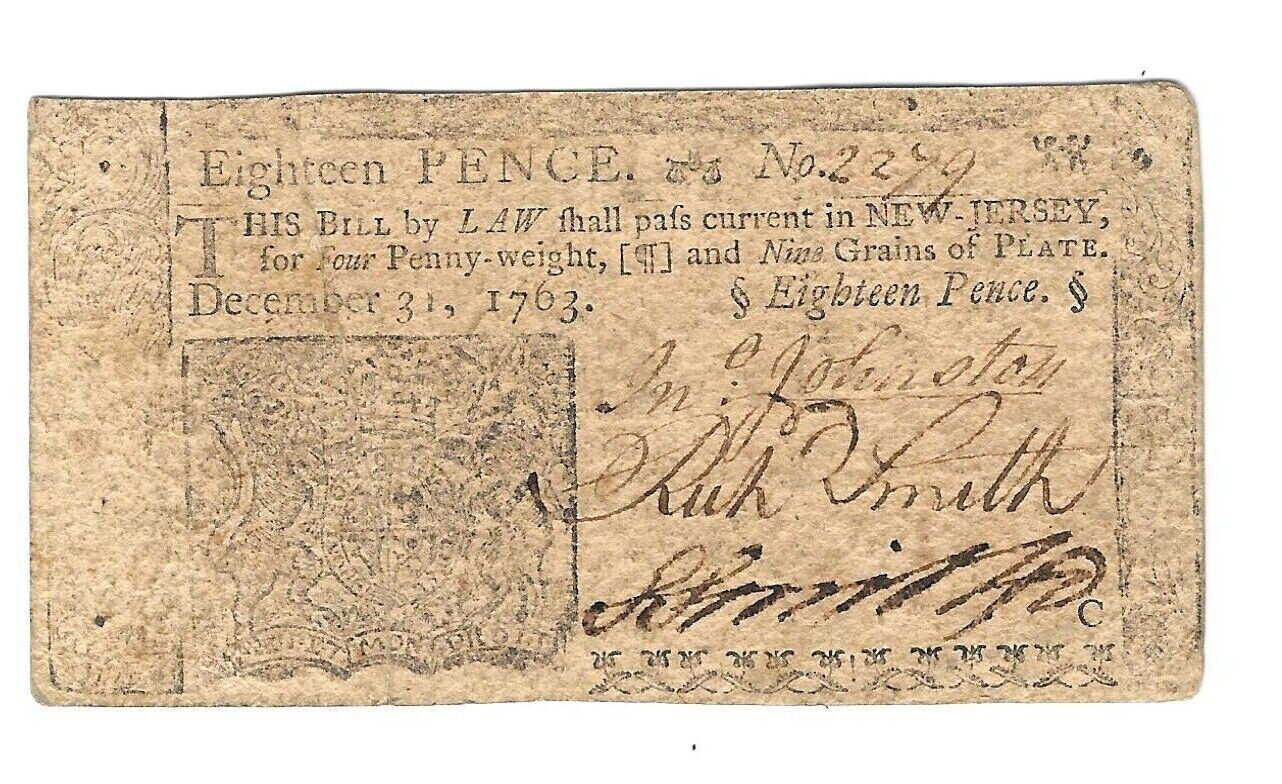 Eighteen PENCE. No. 2279
THIS BILL by LAW ſhall paſs current in NEW-JERSEY,
for Four Penny-weight, [¶] and Nine Grains of PLATE.
December 31, 1763. § Eighteen Pence. §
Jnº. Johnston
Richd Smith
C
DIEU ET MON DROIT